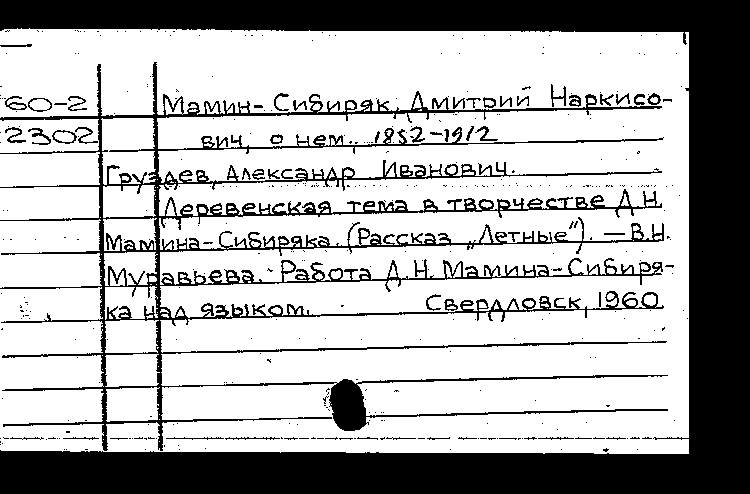 60-2 Мамин-Сибиряк, Дмитрий Наркисо-
2302 вич, о нем, 1852-1912
Груздев, Александр Иванович.
Деревенская тема в творчестве Д.Н.
Мамина-Сибиряка. (Рассказ „Летные"). — В.Н.
Муравьева. Работа Д.Н. Мамина-Сибиря-
ка над языком. Свердловск, 1960